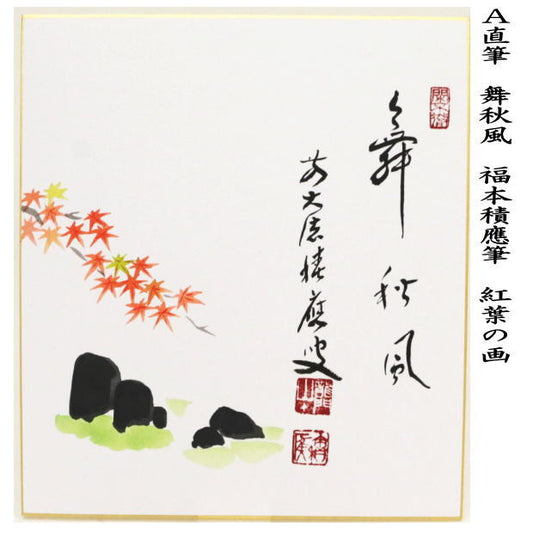 A直筆　舞秋風　福本積應筆　紅葉の画
舞秋風
前大徳積應叟